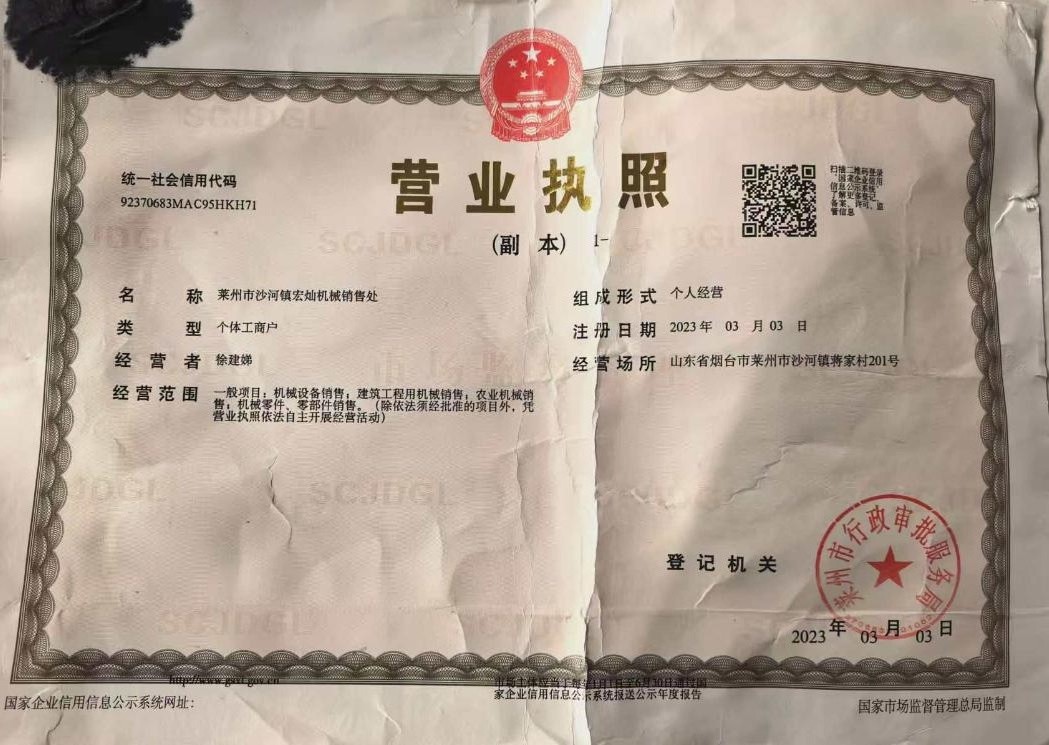 营业执照
(副 本) 1-
统一社会信用代码
92370683MAC95HKH71
扫描二维码登录
'国家企业信用
信息公示系统'
了解更多登记、
备案、许可、监
管信息
名 称 莱州市沙河镇宏灿机械销售处
类 型 个体工商户
经 营 者 徐建娣
经营范围 一般项目：机械设备销售；建筑工程用机械销售；农业机械销
售；机械零件、零部件销售。（除依法须经批准的项目外，凭
营业执照依法自主开展经营活动）
组成形式 个人经营
注册日期 2023 年 03 月 03 日
经营场所 山东省烟台市莱州市沙河镇蒋家村201号
SCJDGL
登记机关
莱州市行政审批服务局
2023 年 03 月 03 日
国家企业信用信息公示系统网址：
http://www.gsxt.gov.cn
市场主体应当于每年1月1日至6月30日通过国
家企业信用信息公示系统报送公示年度报告
国家市场监督管理总局监制